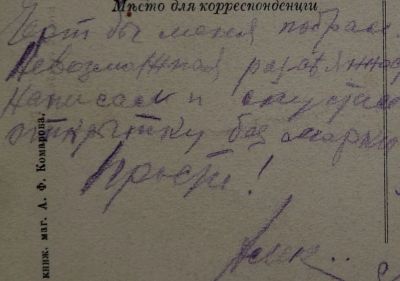 Мѣсто для корреспонденціи
Чорт бы меня побрал
Невозможная развязнос
Написал и опустил
открытку без марки
Прости!
Алек..
книж. маг. А. Ф. Команова.